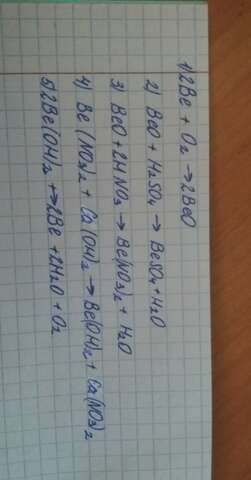 1) 2Be + O₂ → 2BeO
2) BeO + H₂SO₄ → BeSO₄ + H₂O
3) BeO + 2HNO₃ → Be(NO₃)₂ + H₂O
4) Be(NO₃)₂ + Ca(OH)₂ → Be(OH)₂ + Ca(NO₃)₂
5) 2Be(OH)₂ +→ 2Be + 2H₂O + O₂